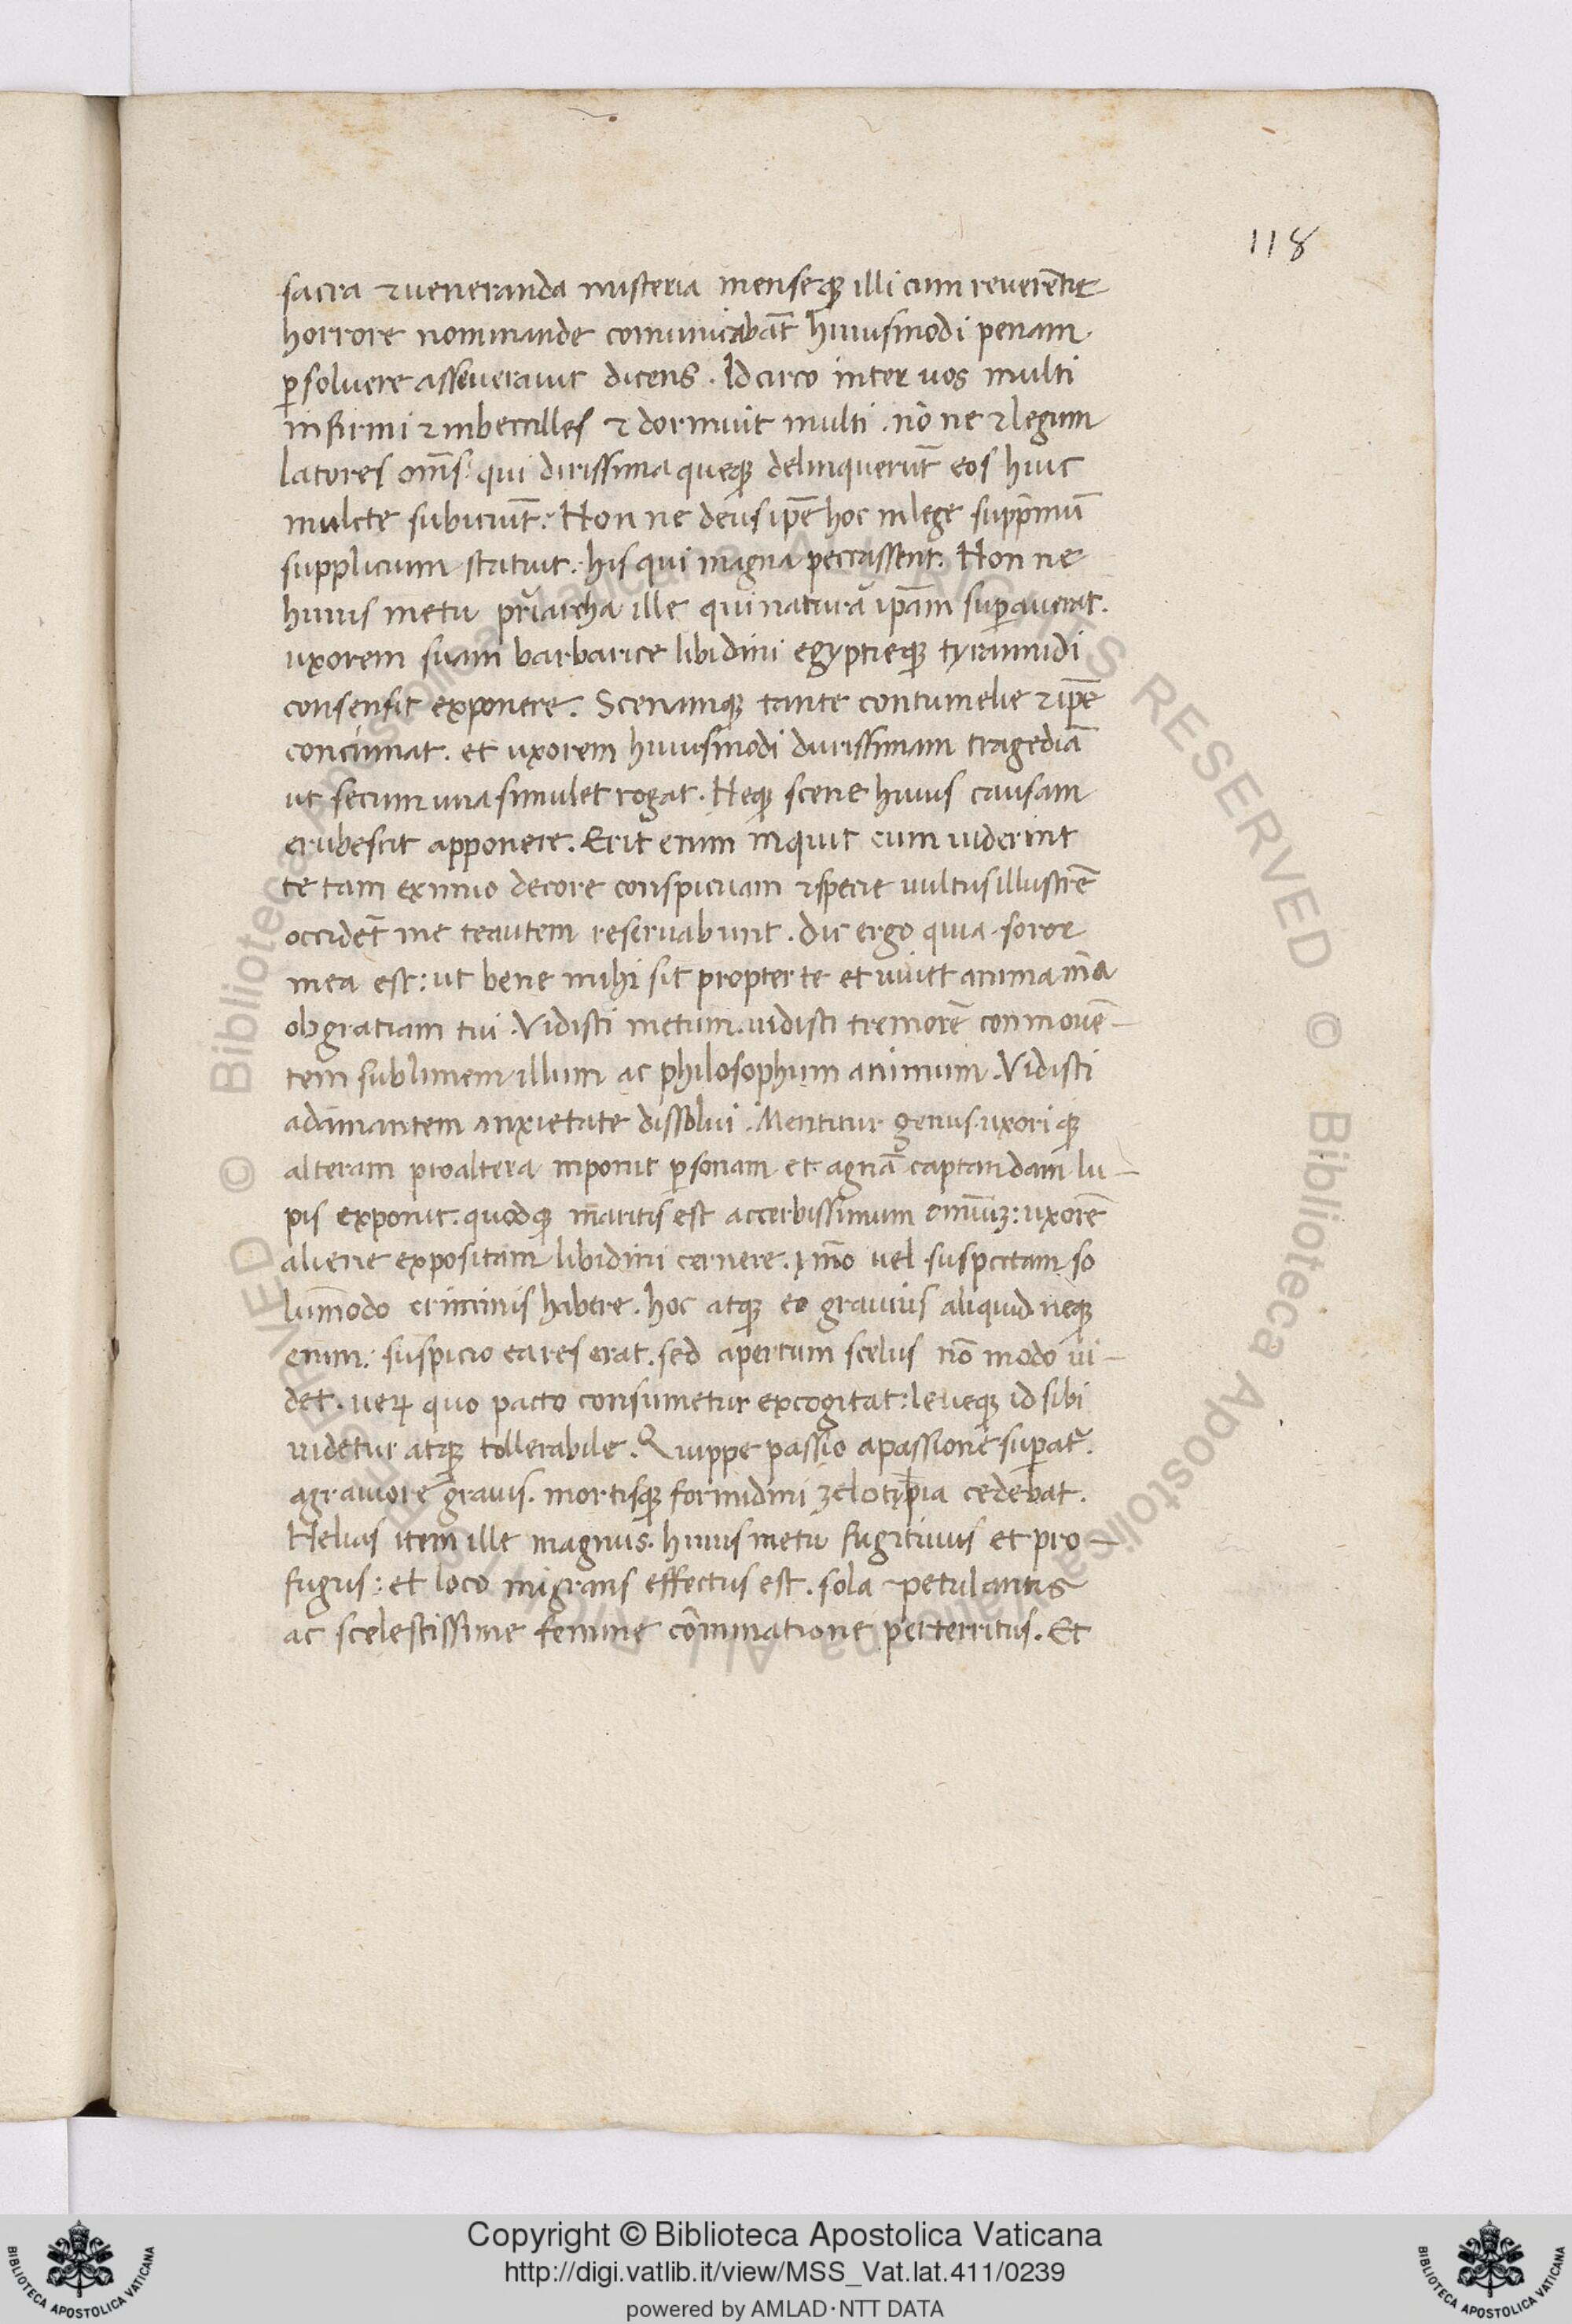 118
sacra ⁊ ueneranda misteria menseqꝫ illi cum reuerẽtie
horrore nominande comunicabãt huiusmodi penam
ꝑsoluere asseuerauit dicens. Idcirco inter uos multi
infirmi ⁊ inbecilles ⁊ dormiũt multi. nõ ne ⁊ legum
latores oms̃ qui durissima queqꝫ delinquerũt eos huic
mulcte subiciũt: Non ne deus ip̃e hoc in lege supp̃mũ
supplicium statuit. his qui magna peccassent. Non ne
huius metu pr̃iarcha ille qui naturã ip̃am suꝑauerat.
uxorem suam barbarice libidini egyptieqꝫ tyrannidi
consensit exponere. Scenamqꝫ tante contumelie ⁊ ip̃e
concinnat. et uxorem huiusmodi durissimam tragediã
ut secum una simulet rogat. Neqꝫ scene huius causam
erubescit apponere. Erit enim inquit cum uiderint
te tam eximio decore conspicuam ⁊ specie uultus illustrẽ
occidẽt me te autem reseruabunt. Dic ergo quia soror
mea est: ut bene mihi sit propter te et uiuet anima m̃a
ob gratiam tui. Vidisti metum. uidisti tremorẽ conmouẽ-
tem sublimem illum ac philosophum animum. Vidisti
adamantem anxietate dissolui. Mentitur genus. uxoriqꝫ
alteram pro altera inponit ꝑsonam et agnã captandam lu-
pis exponit. quodqꝫ maritis est accerbissimum omniũꝫ: uxorẽ
aliene expositam libidini cernere. ỹmo uel suspectam so
lum̃odo criminis habere. hoc atqꝫ eo grauius aliquid neqꝫ
enim: suspicio ea res erat. sed apertum scelus nõ modo ui-
det. ueꝝ quo pacto consumetur excogitat: leueqꝫ id sibi
uidetur atqꝫ tollerabile. Quippe passio a passione suꝑat᷑.
a grauiore grauis. mortisqꝫ formidini zelotypia cedebat.
Helias item ille magnus. huius metu fugitiuus et pro-
fugus: et loco migrans effectus est. sola petulantis
ac scelestissime femine cõminatione perterritus. Et
Copyright © Biblioteca Apostolica Vaticana
http://digi.vatlib.it/view/MSS_Vat.lat.411/0239
powered by AMLAD·NTT DATA